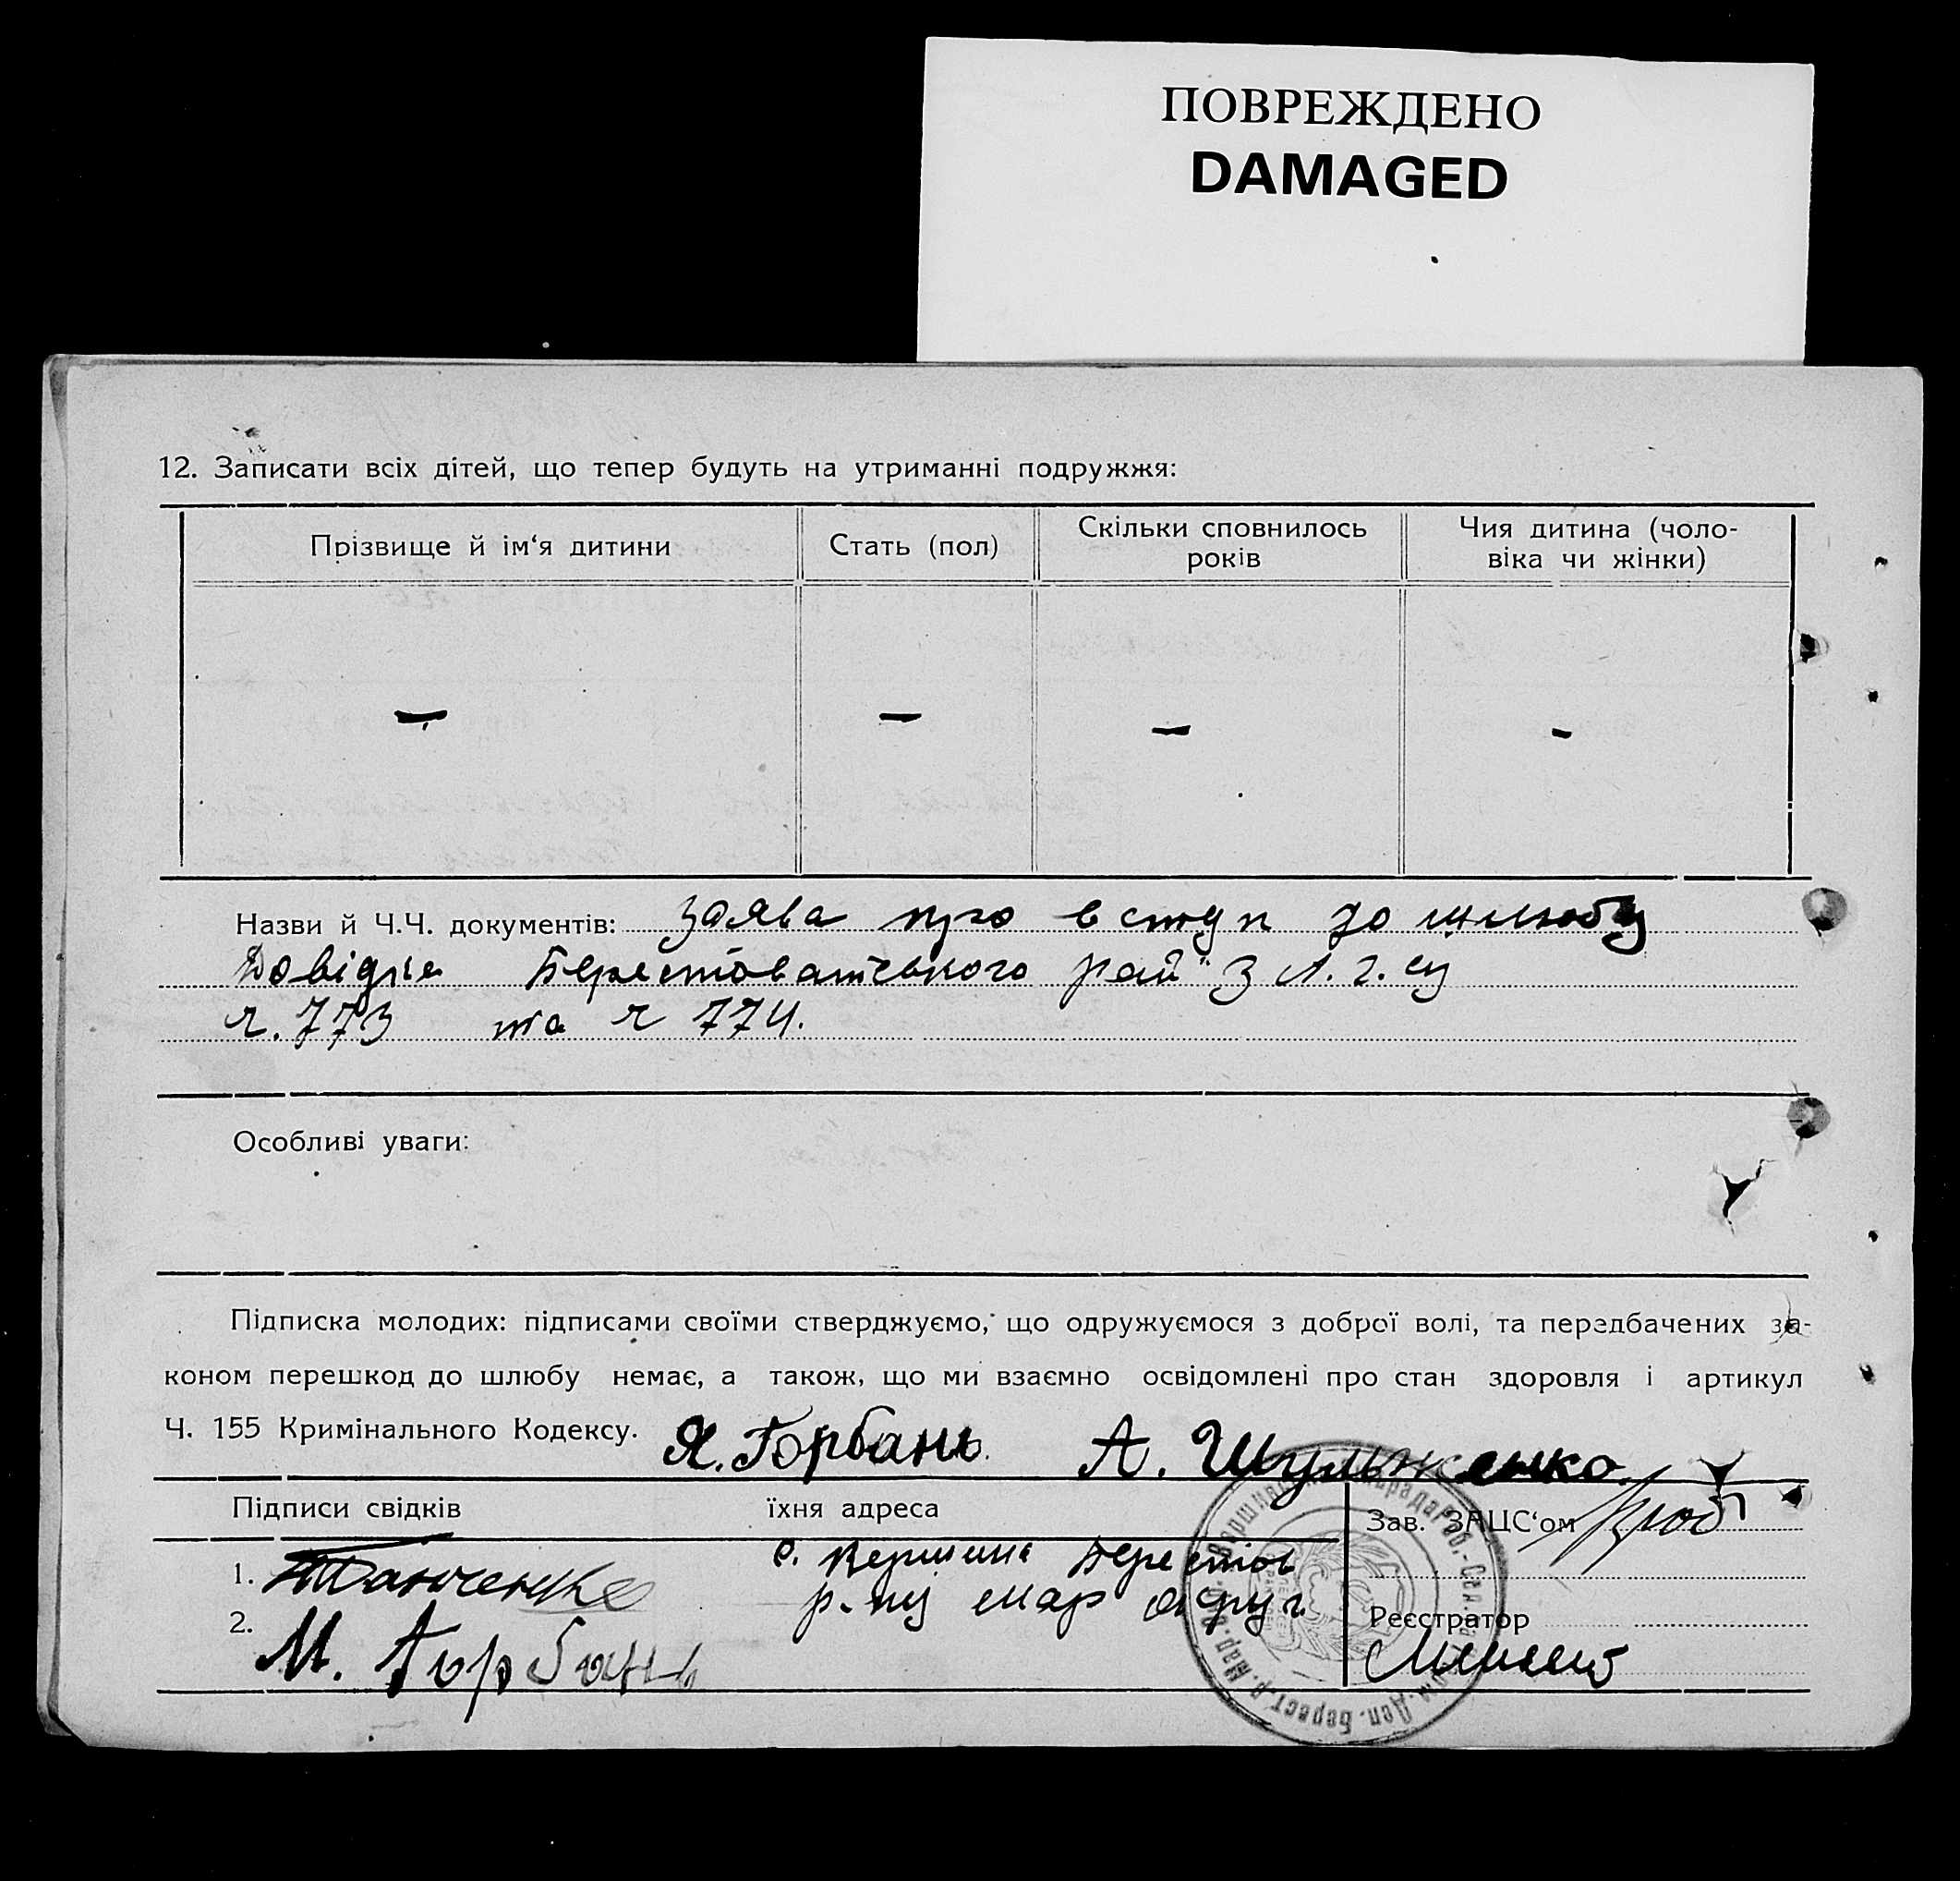 ПОВРЕЖДЕНО
DAMAGED
12. Записати всіх дітей, що тепер будуть на утриманні подружжя:
Прізвище й ім‘я дитини
Стать (пол)
Скільки сповнилось
років
Чия дитина (чоло-
віка чи жінки)
— — — -
Назви й Ч.Ч. документів: Заява про вступ до шлюбу
Довідка Берестоватського рай" З А. г. су
ч. 773 та ч 774.
Особливі уваги:
Підписка молодих: підписами своїми стверджуємо, що одружуємося з доброї волі, та передбачених за-
коном перешкод до шлюбу немає, а також, що ми взаємно освідомлені про стан здоровля і артикул
Ч. 155 Кримінального Кодексу. Я. Горбань. А. Шульженко.
Підписи свідків
їхня адреса
Зав. ЗАЦС‘ом
1.
с. Вершина Берестов
р-ну мар округ
2. М. Горбань
Реєстратор